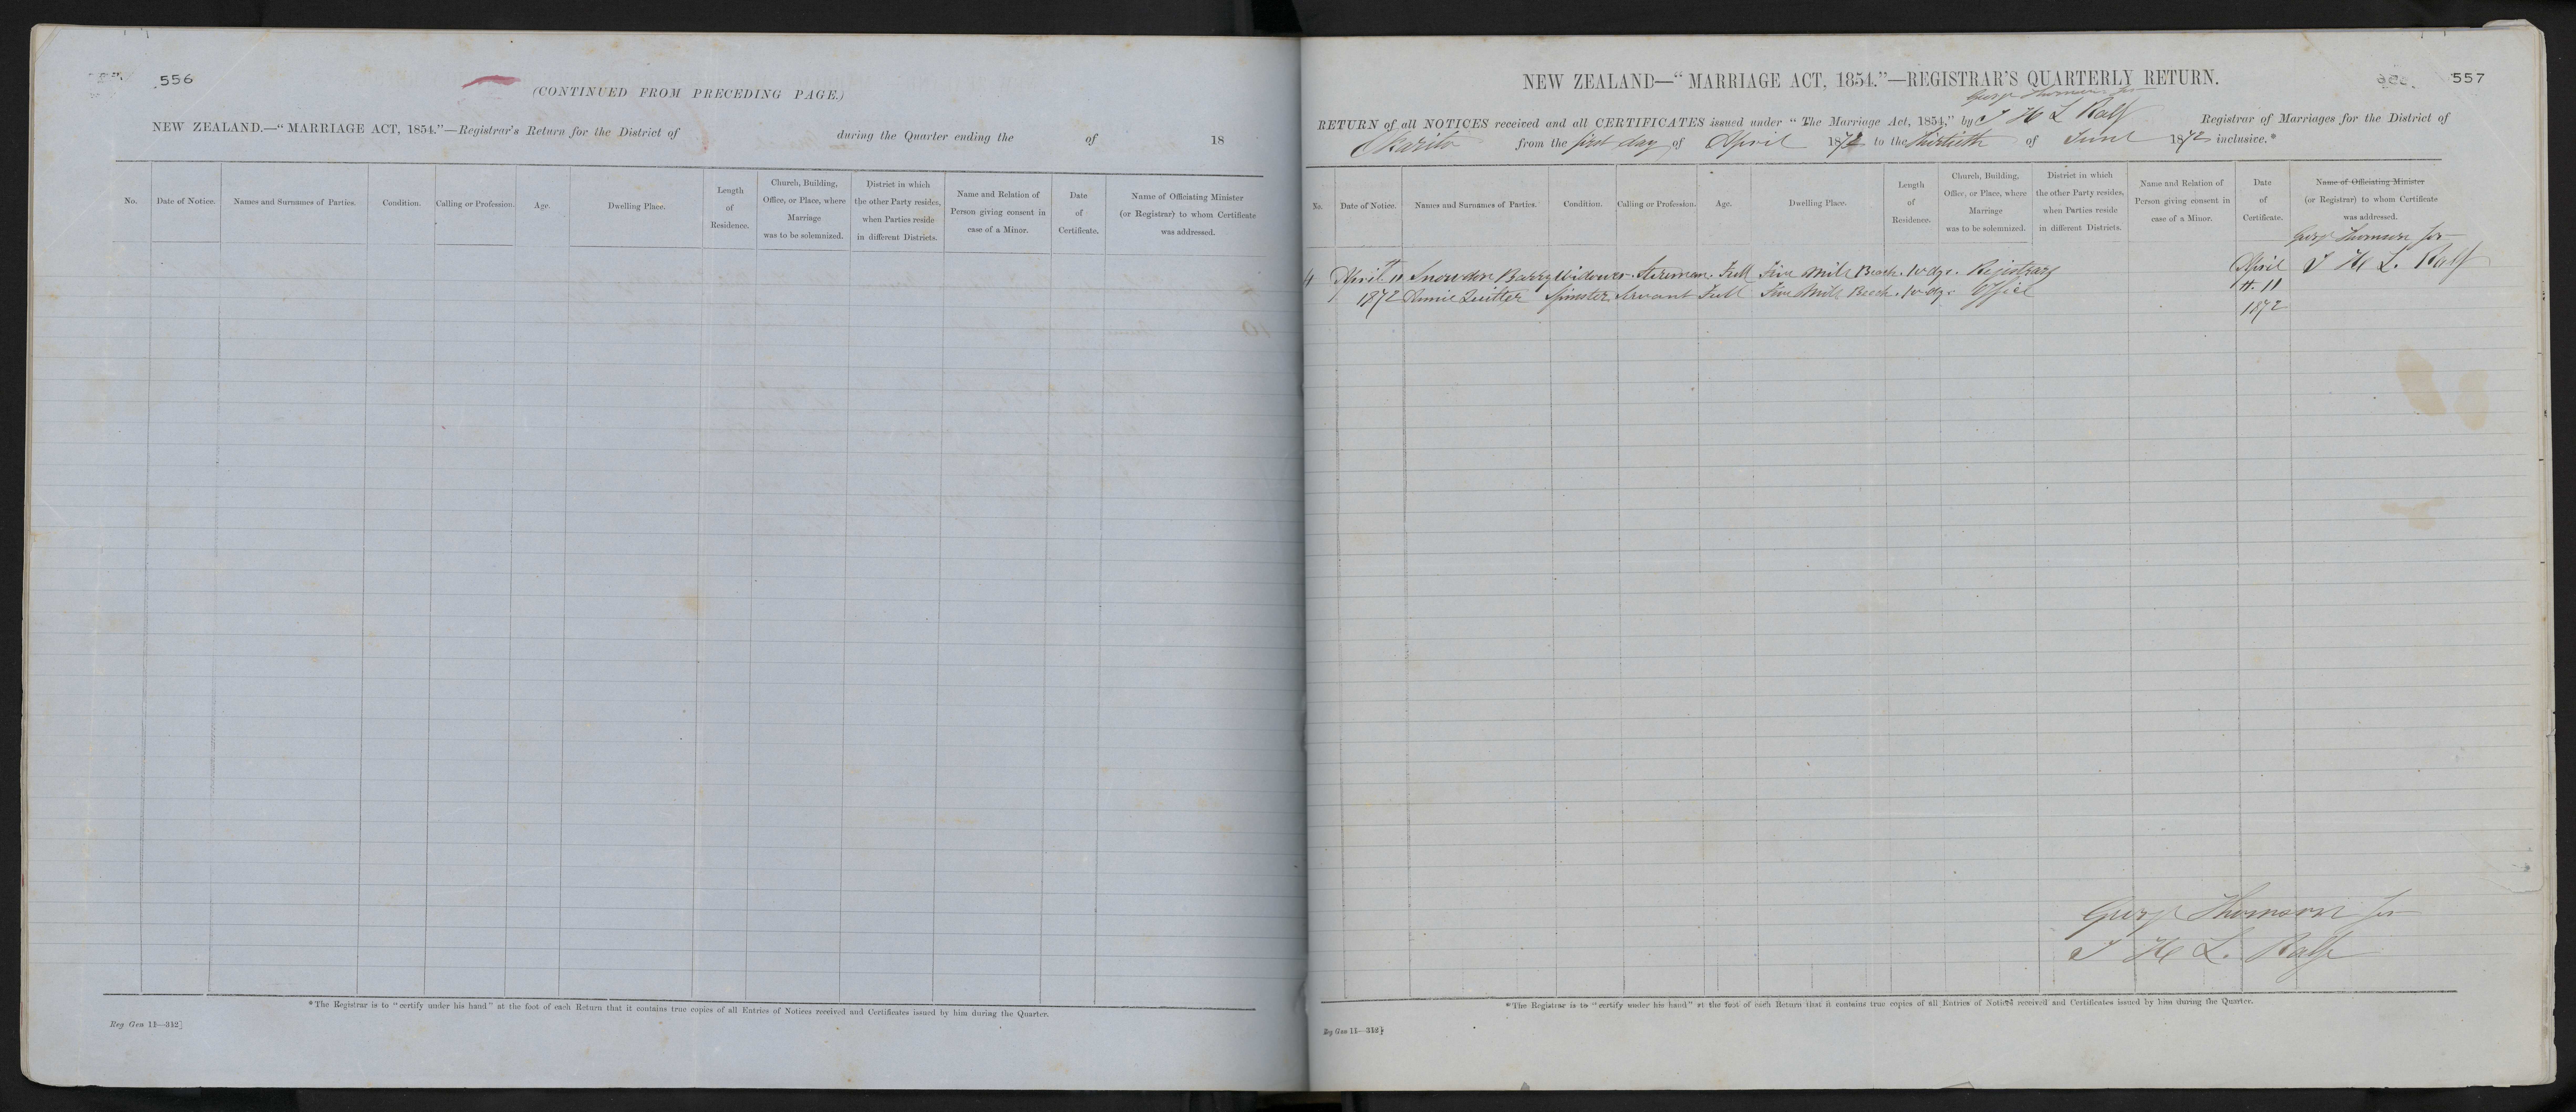 556
(CONTINUED FROM PRECEDING PAGE.)
NEW ZEALAND.—"MARRIAGE ACT, 1854."—Registrar's Return for the District of during the Quarter ending the of 18
No. Date of Notice. Names and Surnames of Parties. Condition. Calling or Profession. Age. Dwelling Place. Length of Residence. Church, Building, Office, or Place, where Marriage was to be solemnized. District in which the other Party resides, when Parties reside in different Districts. Name and Relation of Person giving consent in case of a Minor. Date of Certificate. Name of Officiating Minister (or Registrar) to whom Certificate was addressed.
*The Registrar is to "certify under his hand" at the foot of each Return that it contains true copies of all Entries of Notices received and Certificates issued by him during the Quarter.
Reg Gen 11—312]
557
NEW ZEALAND—"MARRIAGE ACT, 1854."—REGISTRAR'S QUARTERLY RETURN.
George Thomson for
RETURN of all NOTICES received and all CERTIFICATES issued under "The Marriage Act, 1854," by J H L Ralf Registrar of Marriages for the District of
Okarito from the first day of April 1872 to the thirtieth of June 1872 inclusive.*
No. Date of Notice. Names and Surnames of Parties. Condition. Calling or Profession. Age. Dwelling Place. Length of Residence. Church, Building, Office, or Place, where Marriage was to be solemnized. District in which the other Party resides, when Parties reside in different Districts. Name and Relation of Person giving consent in case of a Minor. Date of Certificate. Name of Officiating Minister (or Registrar) to whom Certificate was addressed.
George Thomson for
4 April 11 Snowdon Barry Widower Full Five Mile Beach 10 dys. Registrars April J H L. Ralf
1872 Annie Quitter Spinster Servant Full Five Mile Beach 10 dys Office 11
1872
George Thomson for
J H L. Ralf
*The Registrar is to "certify under his hand" at the foot of each Return that it contains true copies of all Entries of Notices received and Certificates issued by him during the Quarter.
Reg Gen 11—312]